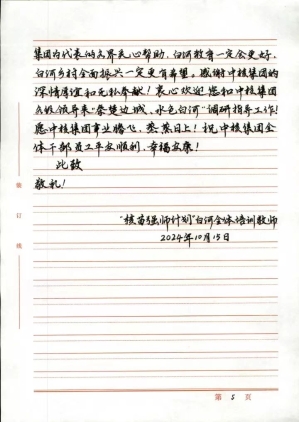 集团为代表的各界关心帮助，白河教育一定会更好，
白河乡村全面振兴一定更有希望。感谢中核集团的
深情厚谊和无私奉献！衷心欢迎您和中核集团
各级领导来“秦楚边城、水色白河”调研指导工作！
愿中核集团事业腾飞、蒸蒸日上！祝中核集团全
体干部员工平安顺利，幸福安康！
此致
敬礼！
“核苗强师计划”白河全体培训教师
2024年10月15日
装
订
线
第 5 页